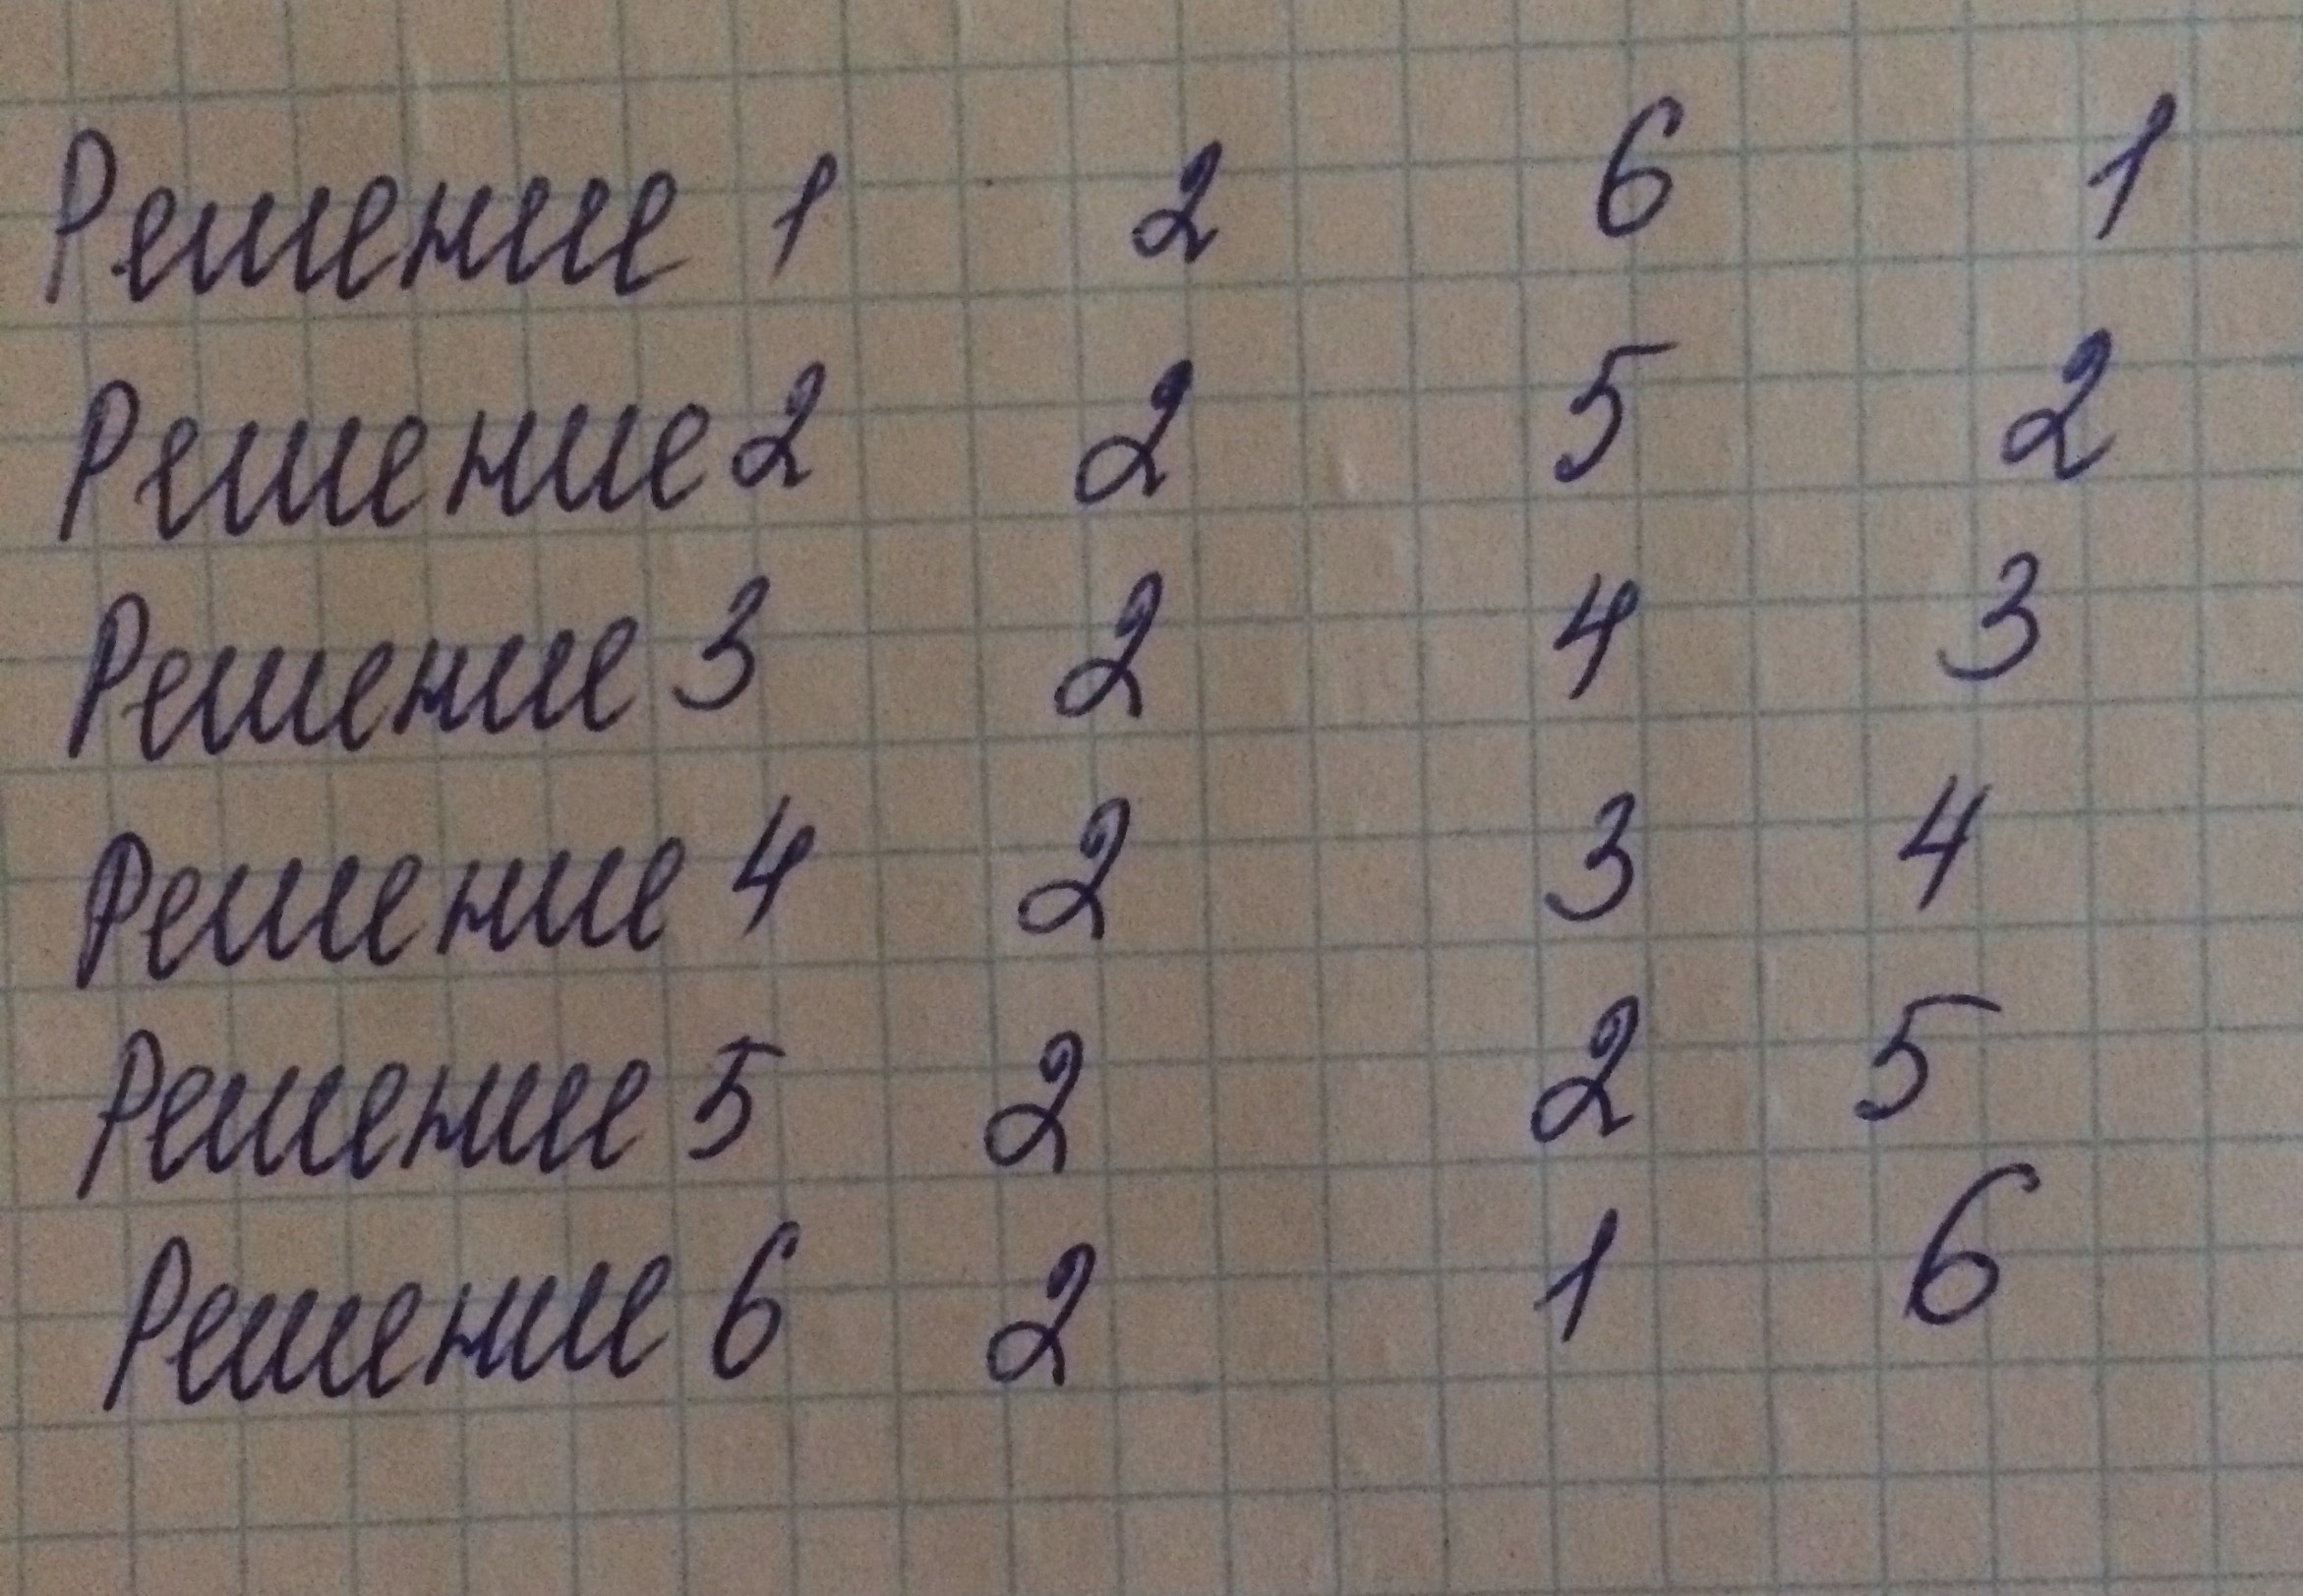 Решение 1 2 6 1
Решение 2 2 5 2
Решение 3 2 4 3
Решение 4 2 3 4
Решение 5 2 2 5
Решение 6 2 1 6